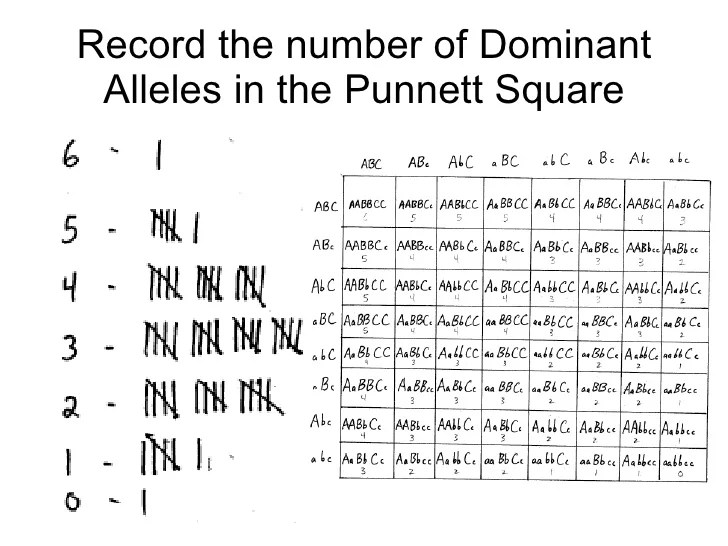 Record the number of Dominant
Alleles in the Punnett Square
6 - 1
5 -
4 -
3 -
2 -
1 -
0 - 1
ABC ABc AbC aBC abC aBc Abc abc
ABC AABBCC AABBCc AABbCC AaBBCC AaBbCC AaBBCc AABbCc AaBbCc
6 5 5 5 4 4 4 3
ABc AABBCc AABBcc AABbCc AaBBCc AaBbCc AaBBcc AABbcc AaBbcc
5 4 4 4 3 3 3 2
AbC AABbCC AABbCc AAbbCC AaBbCC AabbCC AaBbCc AAbbCc AabbCc
5 4 4 4 3 3 3 2
aBC AaBBCC AaBBCc AaBbCC aaBBCC aaBbCC aaBBCc AaBbCc aaBbCc
5 4 4 4 3 3 3 2
abC AaBbCC AaBbCc AabbCC aaBbCC aabbCC aaBbCc AabbCc aabbCc
4 3 3 3 2 2 2 1
aBc AaBBCc AaBBcc AaBbCc aaBBCc aaBbCc aaBBcc AaBbcc aaBbcc
4 3 3 3 2 2 2 1
Abc AABbCc AABbcc AAbbCc AaBbCc AabbCc AaBbcc AAbbcc Aabbcc
4 3 3 3 2 2 2 1
abc AaBbCc AaBbcc AabbCc aaBbCc aabbCc aaBbcc Aabbcc aabbcc
3 2 2 2 1 1 1 0